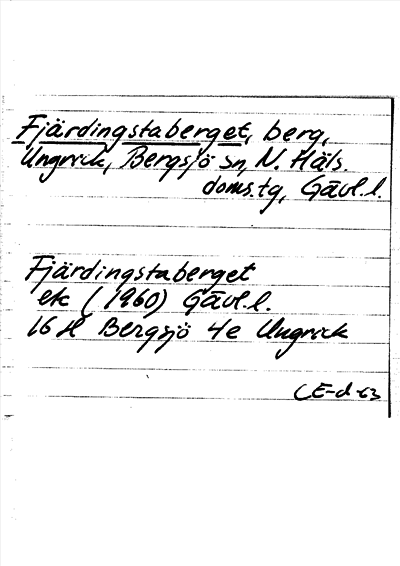 Fjärdingstaberget, berg,
Ungvick, Bergsjö sn, N. Häls.
doms.tg, Gävl.l.
Fjärdingstaberget
ek (1960) Gävl.l.
16 H Bergsjö 4e Ungvick
CE-d-63